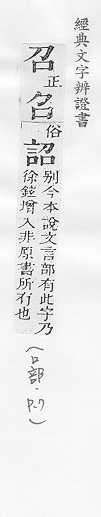 經典文字辨證書
召正名俗詔別今本說文言部有此字乃
徐鉉增入非原書所有也
(口部·P.7)